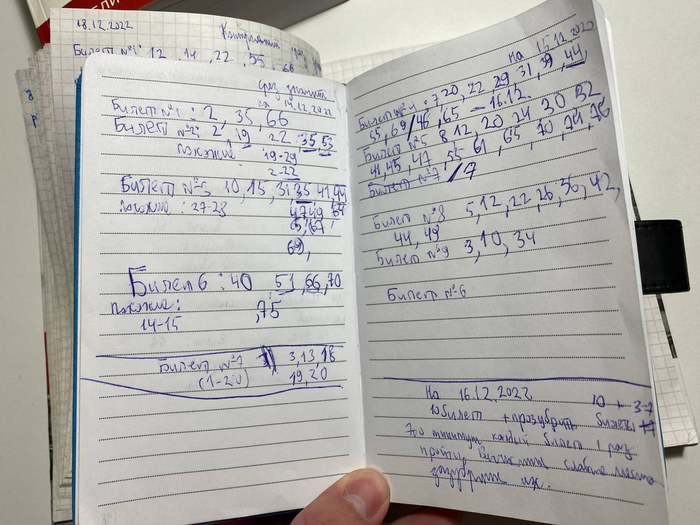 18.12.2022
Билет №1: 12, 14, 22, 55, 66
срез знаний
на 14.12.2022
Билет №1 : 2, 35, 66
Билет №2: 2, 19, 22, 35, 53
похожие : 19-29
2-22
Билет №3 10, 15, 31, 35, 41, 44
похожие : 27-28
47, 49, 64,
65, 67,
69,
Билет 6 : 40, 51, 66, 70
похожие : ,75
14-15
Билет №7 3, 13, 18
(1-20) 19, 20
на 15.12.2022
Билет №4 : 7, 20, 22, 29, 31, 39, 44,
55, 69 / 46, 65 – 16.12.
Билет №5 8, 12, 20, 24, 30, 32
41, 45, 47, 55, 61, 65, 70, 74, 76
Билет №7 / 7
Билет №8 5, 12, 22, 26, 36, 42,
44, 49
Билет №9 3, 10, 34
Билет №6
На 16.12.2022
10 билет + прозубрить билеты
каждый билет 1 раз
слабые места